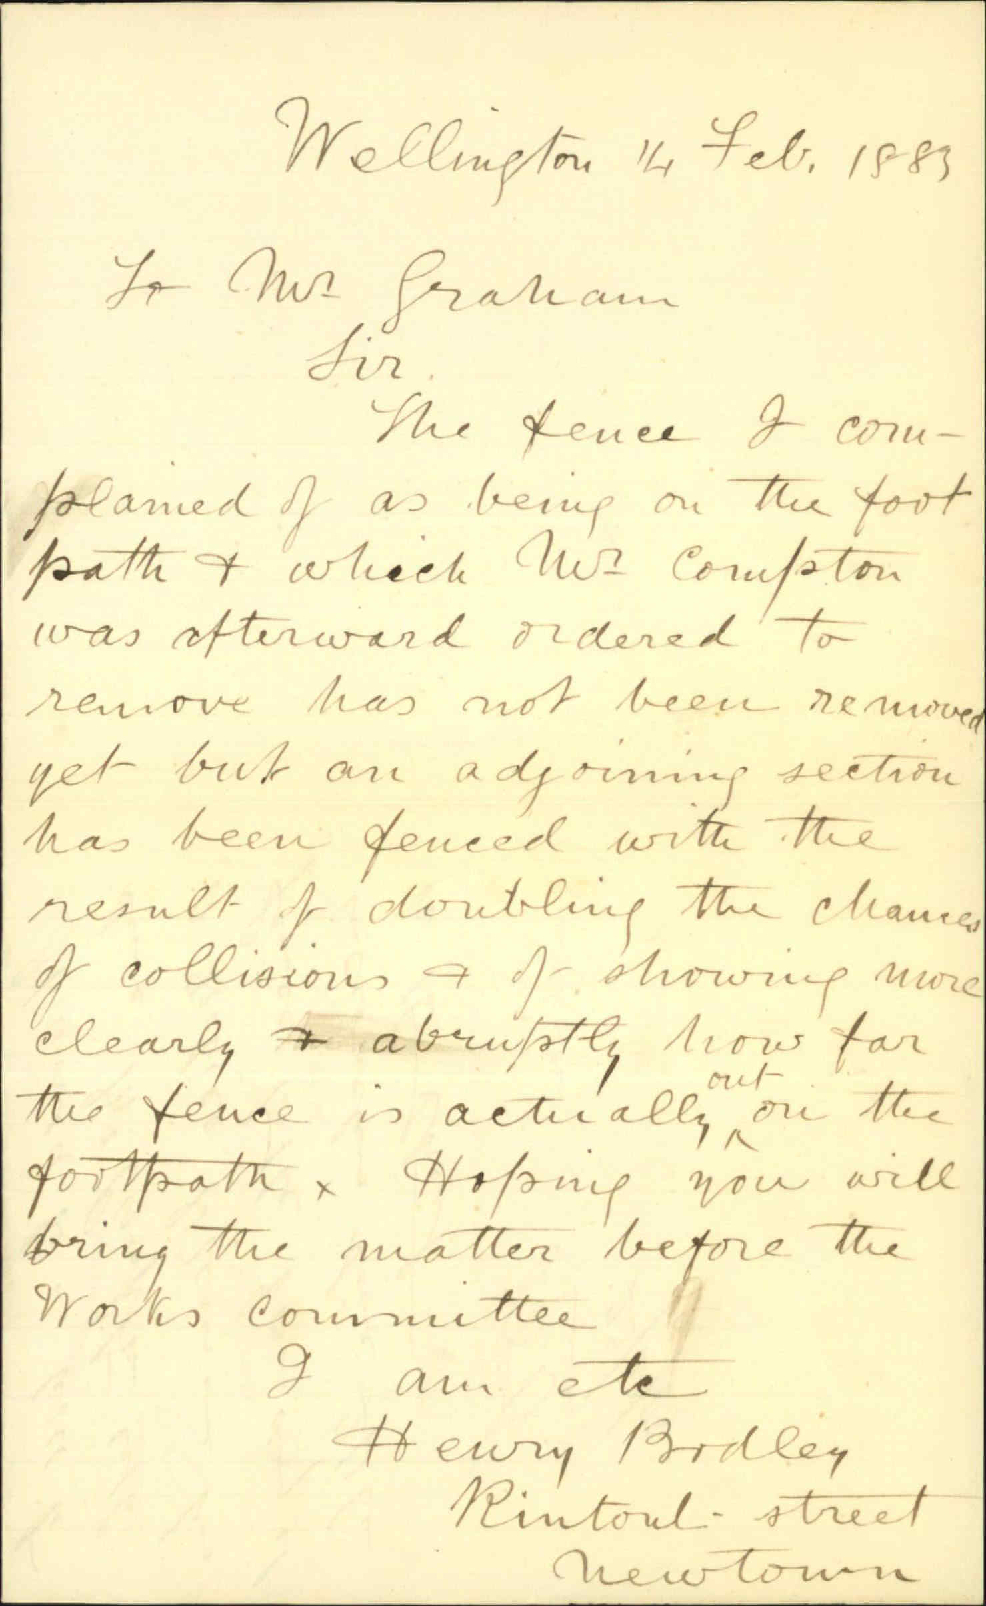 Wellington 14 Feb. 1883
To Mr Graham
Sir
The fence I com-
plained of as being on the foot
path & which Mr Compton
was afterward ordered to
remove has not been removed
yet but an adjoining section
has been fenced with the
result of doubling the chances
of collisions & of showing more
clearly & abruptly how far
the fence is actually out on the
footpath x Hoping you will
bring the matter before the
Works committee
I am etc
Henry Bodley
Rintoul-street
Newtown